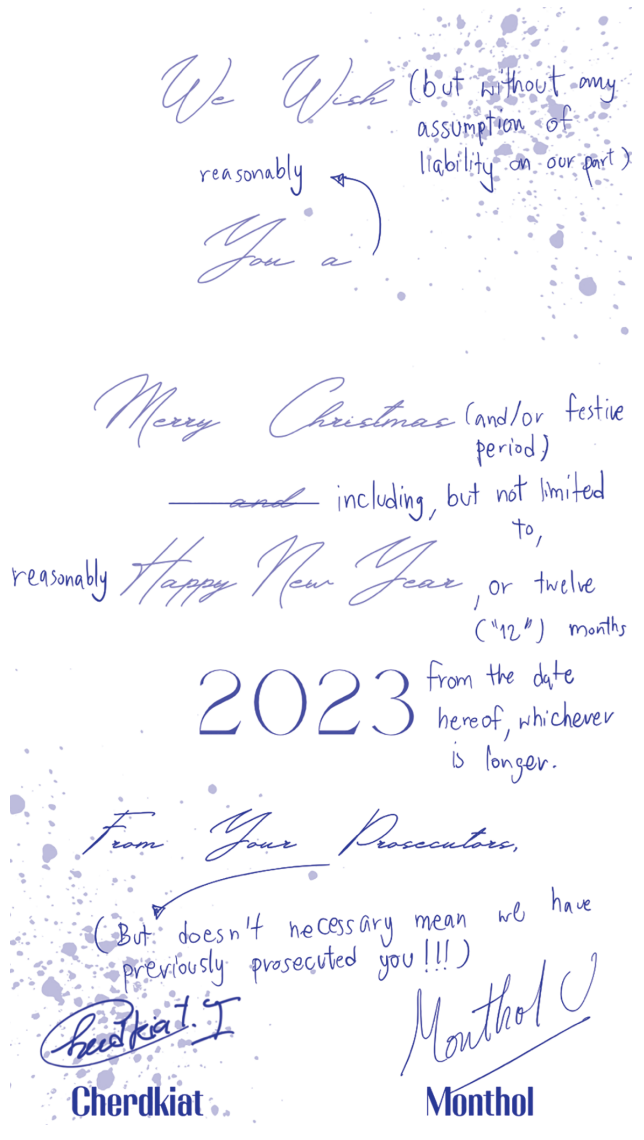 We Wish (but without any
assumption of
liability on our part)
reasonably
You a
Merry Christmas (and/or festive
period)
and including, but not limited
to,
reasonably Happy New Year, or twelve
("12") months
2023 from the date
hereof, whichever
is longer.
From Your Prosecutors,
(But doesn't necessary mean we have
previously prosecuted you!!!)
Cherdkiat. I Monthol U
Cherdkiat Monthol